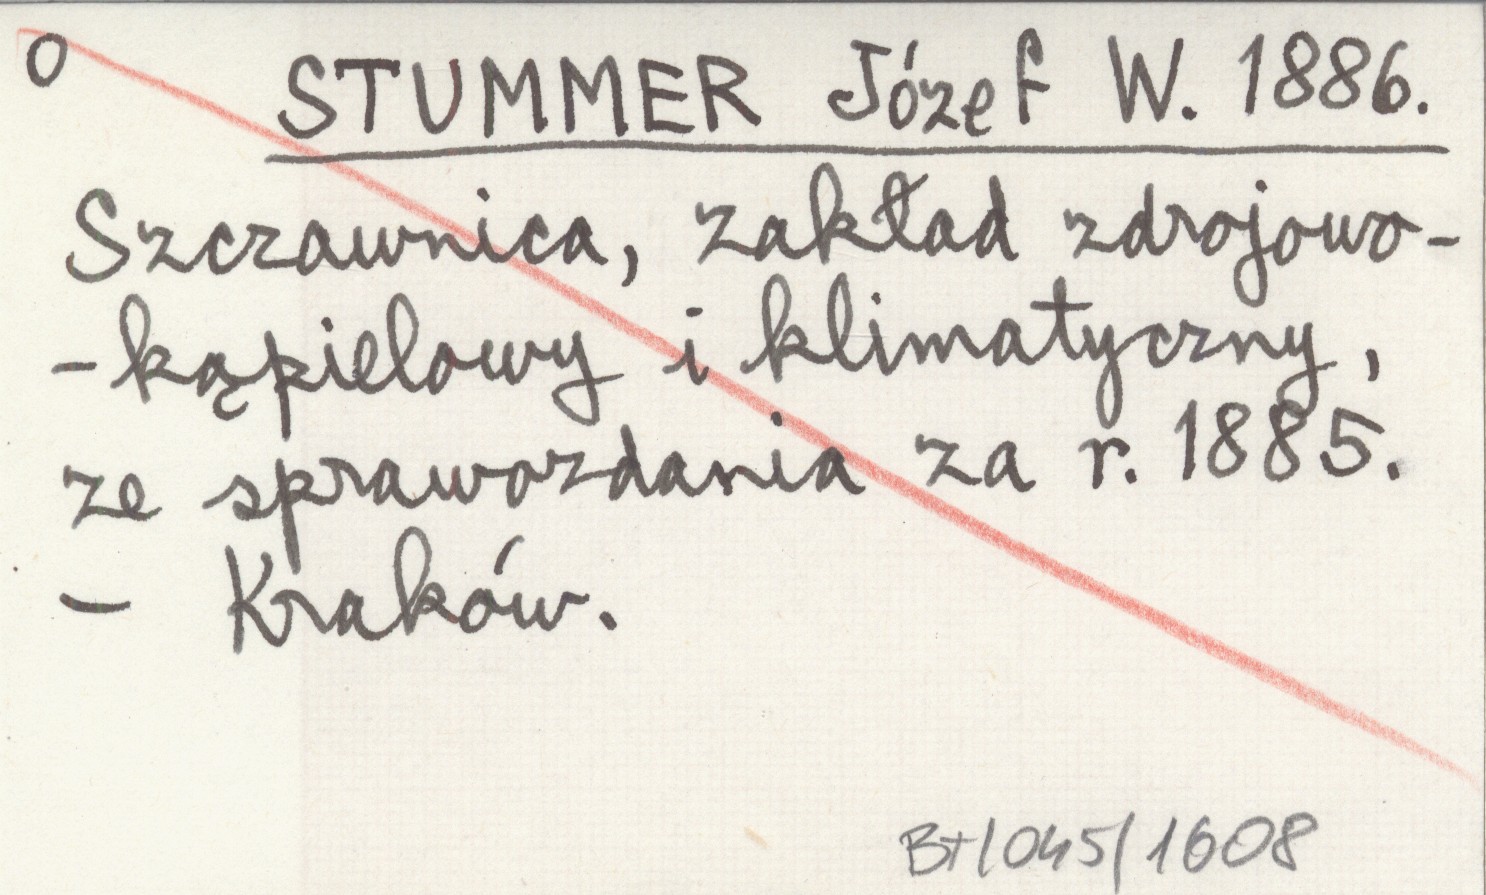 O STUMMER Józef W. 1886.
Szczawnica, zakład zdrojowo-
-kąpielowy i klimatyczny,
ze sprawozdania za r. 1885.
- Kraków.
B+/045/1608